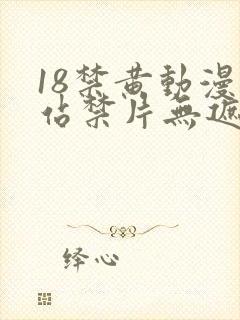 18禁黄動漫
佔禁片無遮
绎心